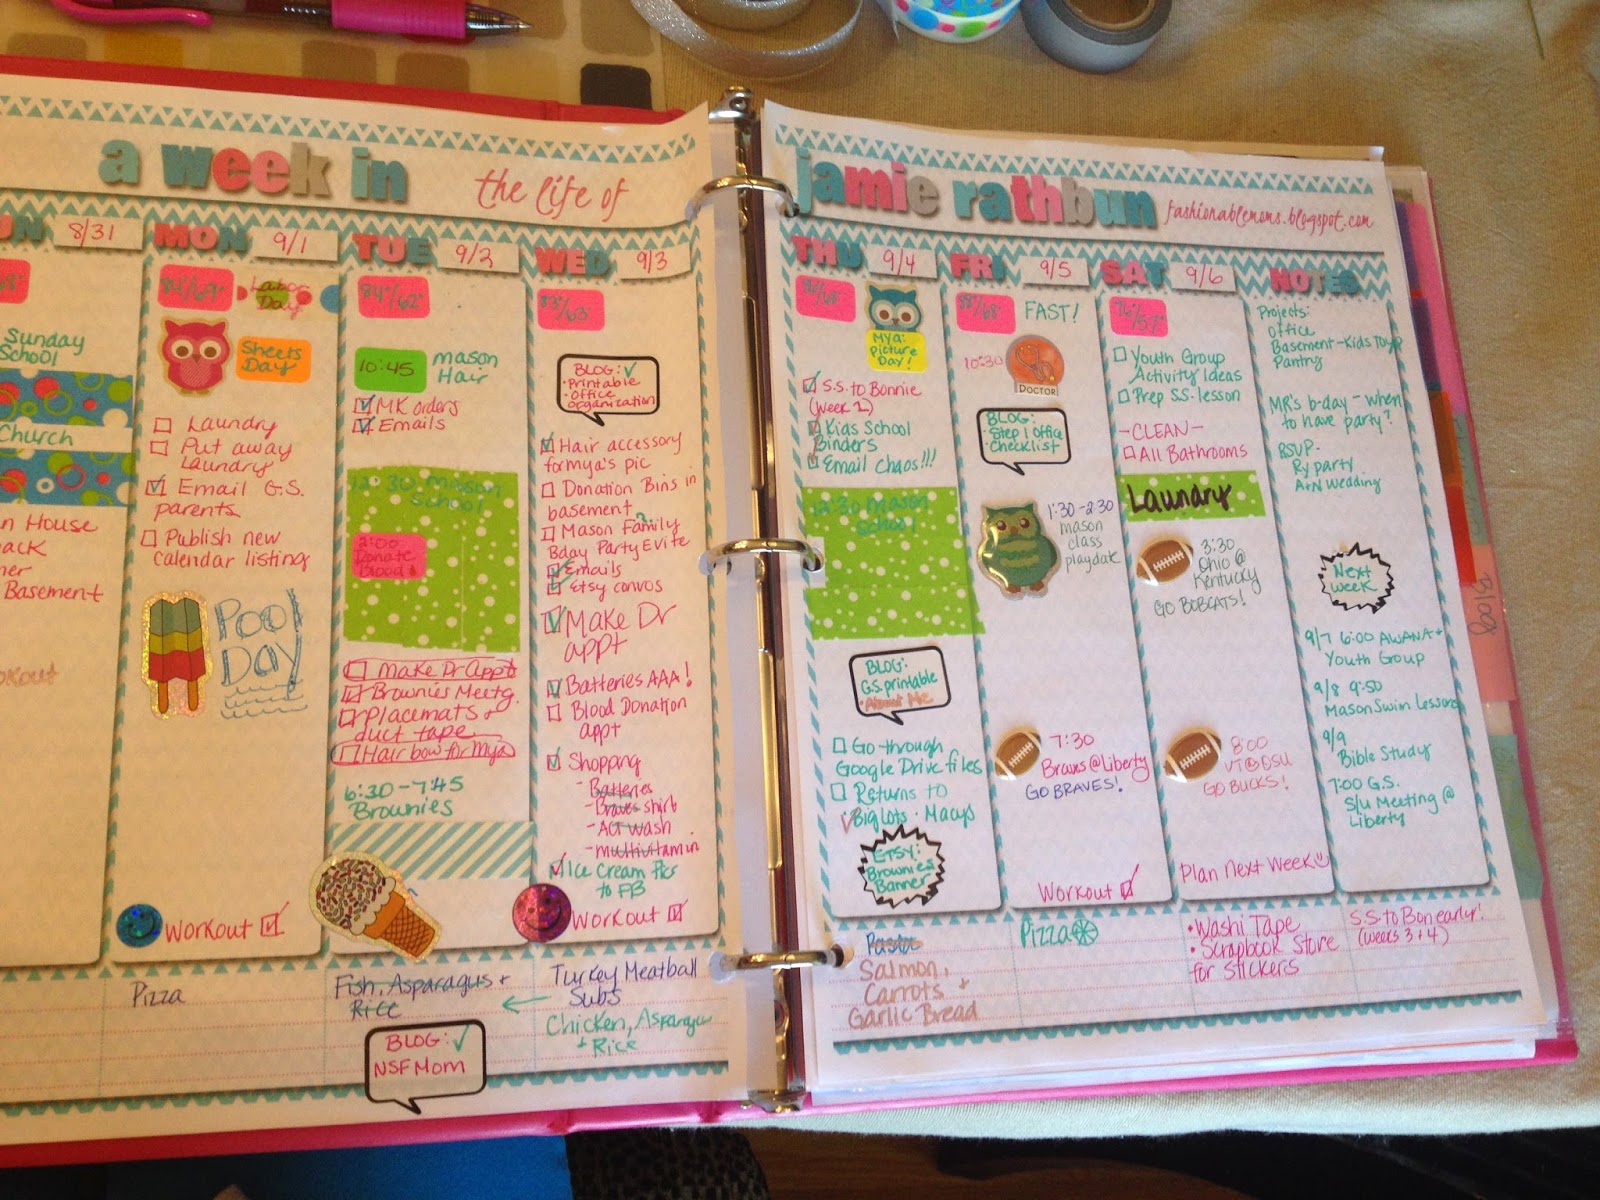 a week in
the life of
jamie rathbun
fashionablemoms.blogspot.com
UN 8/31
Sunday
School
Church
n House
ack
ner
Basement
orkout
MON 9/1
84°/69°
Labor
Day
Sheets
Day
Laundry
Put away
Laundry
Email G.S.
parents
Publish new
calendar listing
POOL
DAY
Workout
Pizza
TUE 9/2
84°/62°
10:45
Mason
Hair
MK orders
Emails
12:30 Mason
School
2:00
Donate
Blood
Make Dr Appt
Brownies Meetg.
Placemats +
duct tape
Hair bow for Mya
6:30-7:45
Brownies
Fish, Asparagus +
Rice
BLOG:
NSF Mom
WED 9/3
83°/63°
BLOG:
Printable
Office
organization
Hair accessory
for mya's pic
Donation Bins in
basement
Mason Family
Bday Party Evite
Emails
Etsy convos
Make Dr
appt
Batteries AAA!
Blood Donation
appt
Shopping
- Batteries
- Braves shirt
- ACT wash
- multivitamin
Ice Cream Pics
to FB
Workout
Turkey Meatball
Subs
Chicken, Asparagus
+ Rice
THU 9/4
Mya:
Picture
Day!
S.S. to Bonnie
(Week 2)
Kids School
Binders
Email Chaos!!!
12:30 Mason
School
BLOG:
G.S. printable
• About Me
Go through
Google Drive files
Returns to
Big Lots · Macys
ETSY:
Brownies
Banner
Pasta
Salmon,
Carrots +
Garlic Bread
FRI 9/5
88°/68°
FAST!
10:30
DOCTOR
BLOG:
Step 1 Office
Checklist
1:30-2:30
mason
class
playdate
7:30
Braves @ Liberty
GO BRAVES!
Workout
Pizza
SAT 9/6
76°/57°
Youth Group
Activity Ideas
Prep S.S. lesson
- CLEAN -
All Bathrooms
Laundry
3:30
Ohio @
Kentucky
GO BOBCATS!
8:00
VT @ OSU
GO BUCKS!
Plan Next Week
• Washi Tape
• Scrapbook Store
for stickers
NOTES
Projects:
Office
Basement - Kids Toys
Pantry
MR's b-day - when
to have party?
RSVP-
Ry party
A+N Wedding
Next
Week
9/7 6:00 AWANA +
Youth Group
9/8 9:50
Mason Swim Lessons
9/9
Bible Study
7:00 G.S.
S/U Meeting @
Liberty
S.S. to Bon early!
(weeks 3+4)
Blog